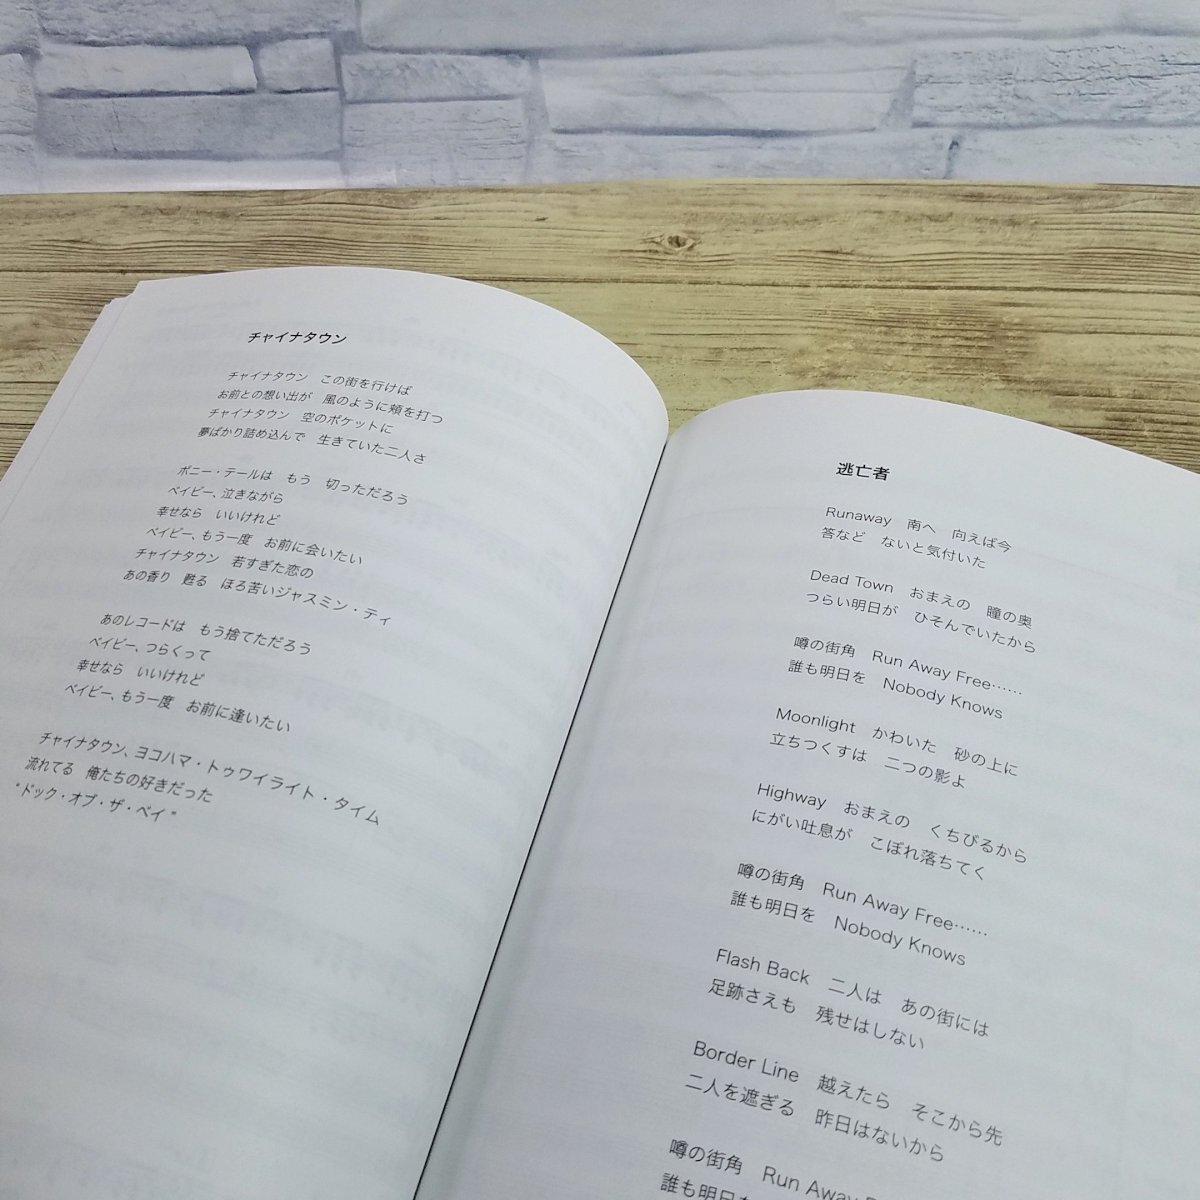 チャイナタウン
チャイナタウン　この街を行けば
お前との想い出が　風のように頬を打つ
チャイナタウン　空のポケットに
夢ばかり詰め込んで　生きていた二人さ
ポニー・テールは　もう　切っただろう
ベイビー、泣きながら
幸せなら　いいけれど
ベイビー、もう一度　お前に会いたい
チャイナタウン　若すぎた恋の
あの香り　甦る　ほろ苦いジャスミン・ティ
あのレコードは　もう捨てただろう
ベイビー、つらくって
幸せなら　いいけれど
ベイビー、もう一度　お前に逢いたい
チャイナタウン、ヨコハマ・トゥワイライト・タイム
流れてる　俺たちの好きだった
“ドック・オブ・ザ・ベイ”
逃亡者
Runaway　南へ　向えば今
答など　ないと気付いた
Dead Town　おまえの　瞳の奥
つらい明日が　ひそんでいたから
噂の街角　Run Away Free……
誰も明日を　Nobody Knows
Moonlight　かわいた　砂の上に
立ちつくすは　二つの影よ
Highway　おまえの　くちびるから
にがい吐息が　こぼれ落ちてく
噂の街角　Run Away Free……
誰も明日を　Nobody Knows
Flash Back　二人は　あの街には
足跡さえも　残せはしない
Border Line　越えたら　そこから先
二人を遮ぎる　昨日はないから
噂の街角　Run Away
誰も明日を